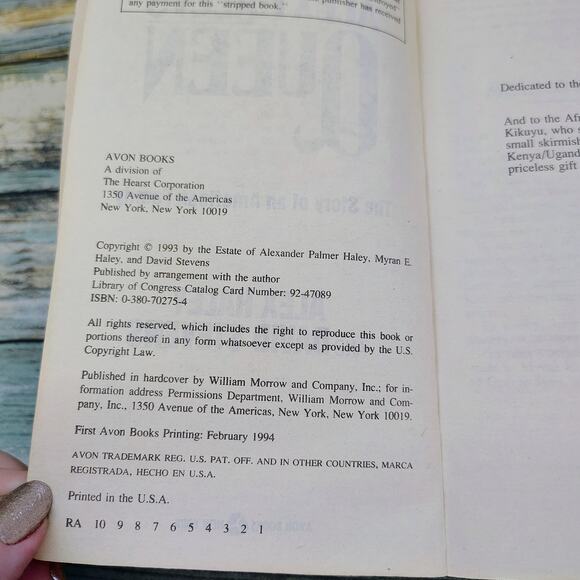 publisher has received
any payment for this "stripped book."
QUEEN
The Story of an
AVON BOOKS
A division of
The Hearst Corporation
1350 Avenue of the Americas
New York, New York 10019
Copyright © 1993 by the Estate of Alexander Palmer Haley, Myran E.
Haley, and David Stevens
Published by arrangement with the author
Library of Congress Catalog Card Number: 92-47089
ISBN: 0-380-70275-4
All rights reserved, which includes the right to reproduce this book or
portions thereof in any form whatsoever except as provided by the U.S.
Copyright Law.
Published in hardcover by William Morrow and Company, Inc.; for in-
formation address Permissions Department, William Morrow and Com-
pany, Inc., 1350 Avenue of the Americas, New York, New York 10019.
First Avon Books Printing: February 1994
AVON TRADEMARK REG. U.S. PAT. OFF. AND IN OTHER COUNTRIES, MARCA
REGISTRADA, HECHO EN U.S.A.
Printed in the U.S.A.
RA 10 9 8 7 6 5 4 3 2 1
Dedicated to the
And to the
Kikuyu, who
small
Kenya/
priceless gift